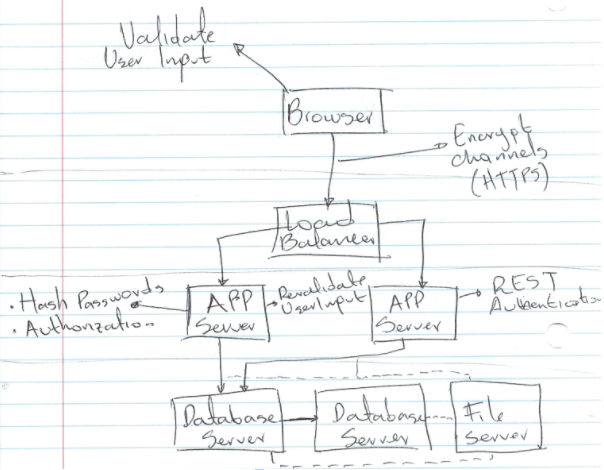 Validate
User Input
Browser
Encrypt
channels
(HTTPS)
Load
Balancer
. Hash Passwords
. Authorization
APP
Server
Revalidate
User Input
APP
Server
REST
Authentication
Database
Server
Database
Server
File
Server